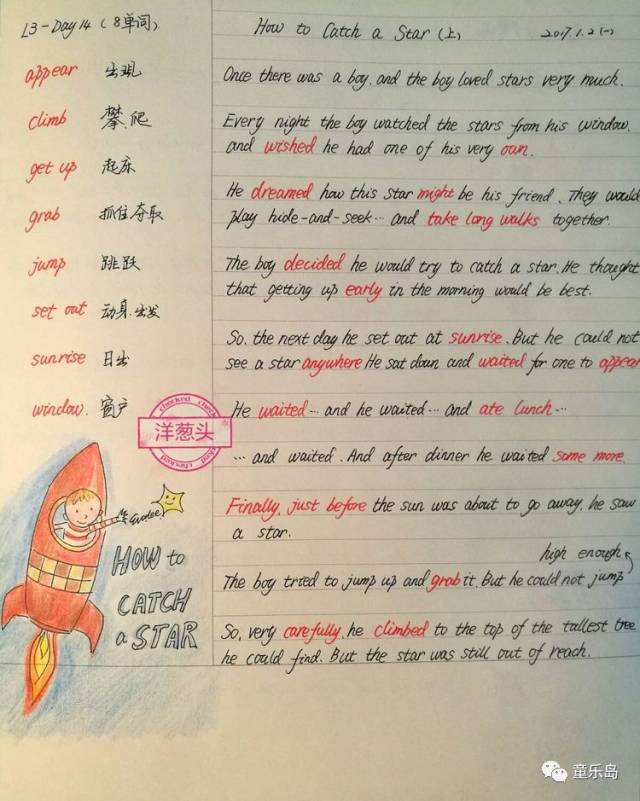 L3-Day14 (8单词)
appear 出现
climb 攀爬
get up 起床
grab 抓住夺取
jump 跳跃
set out 动身.出发
sunrise 日出
window. 窗户
checked
洋葱头
HOW to
CATCH
a STAR
How to Catch a Star (上) 2017.1.2(一)
Once there was a boy. and the boy loved stars very much.
Every night the boy watched the stars from his window.
and wished he had one of his very own.
He dreamed how this star might be his friend. They would
play hide-and-seek... and take long walks together.
The boy decided he would try to catch a star. He thought
that getting up early in the morning would be best.
So. the next day he set out at sunrise. But he could not
see a star anywhere He sat down and waited for one to appear
He waited... and he waited... and ate lunch...
... and waited. And after dinner he waited some more.
Finally, just before the sun was about to go away. he saw
a star.
high enough
The boy tried to jump up and grab it. But he could not jump
So, very carefully. he climbed to the top of the tallest tree
he could find. But the star was still out of reach.
童乐岛